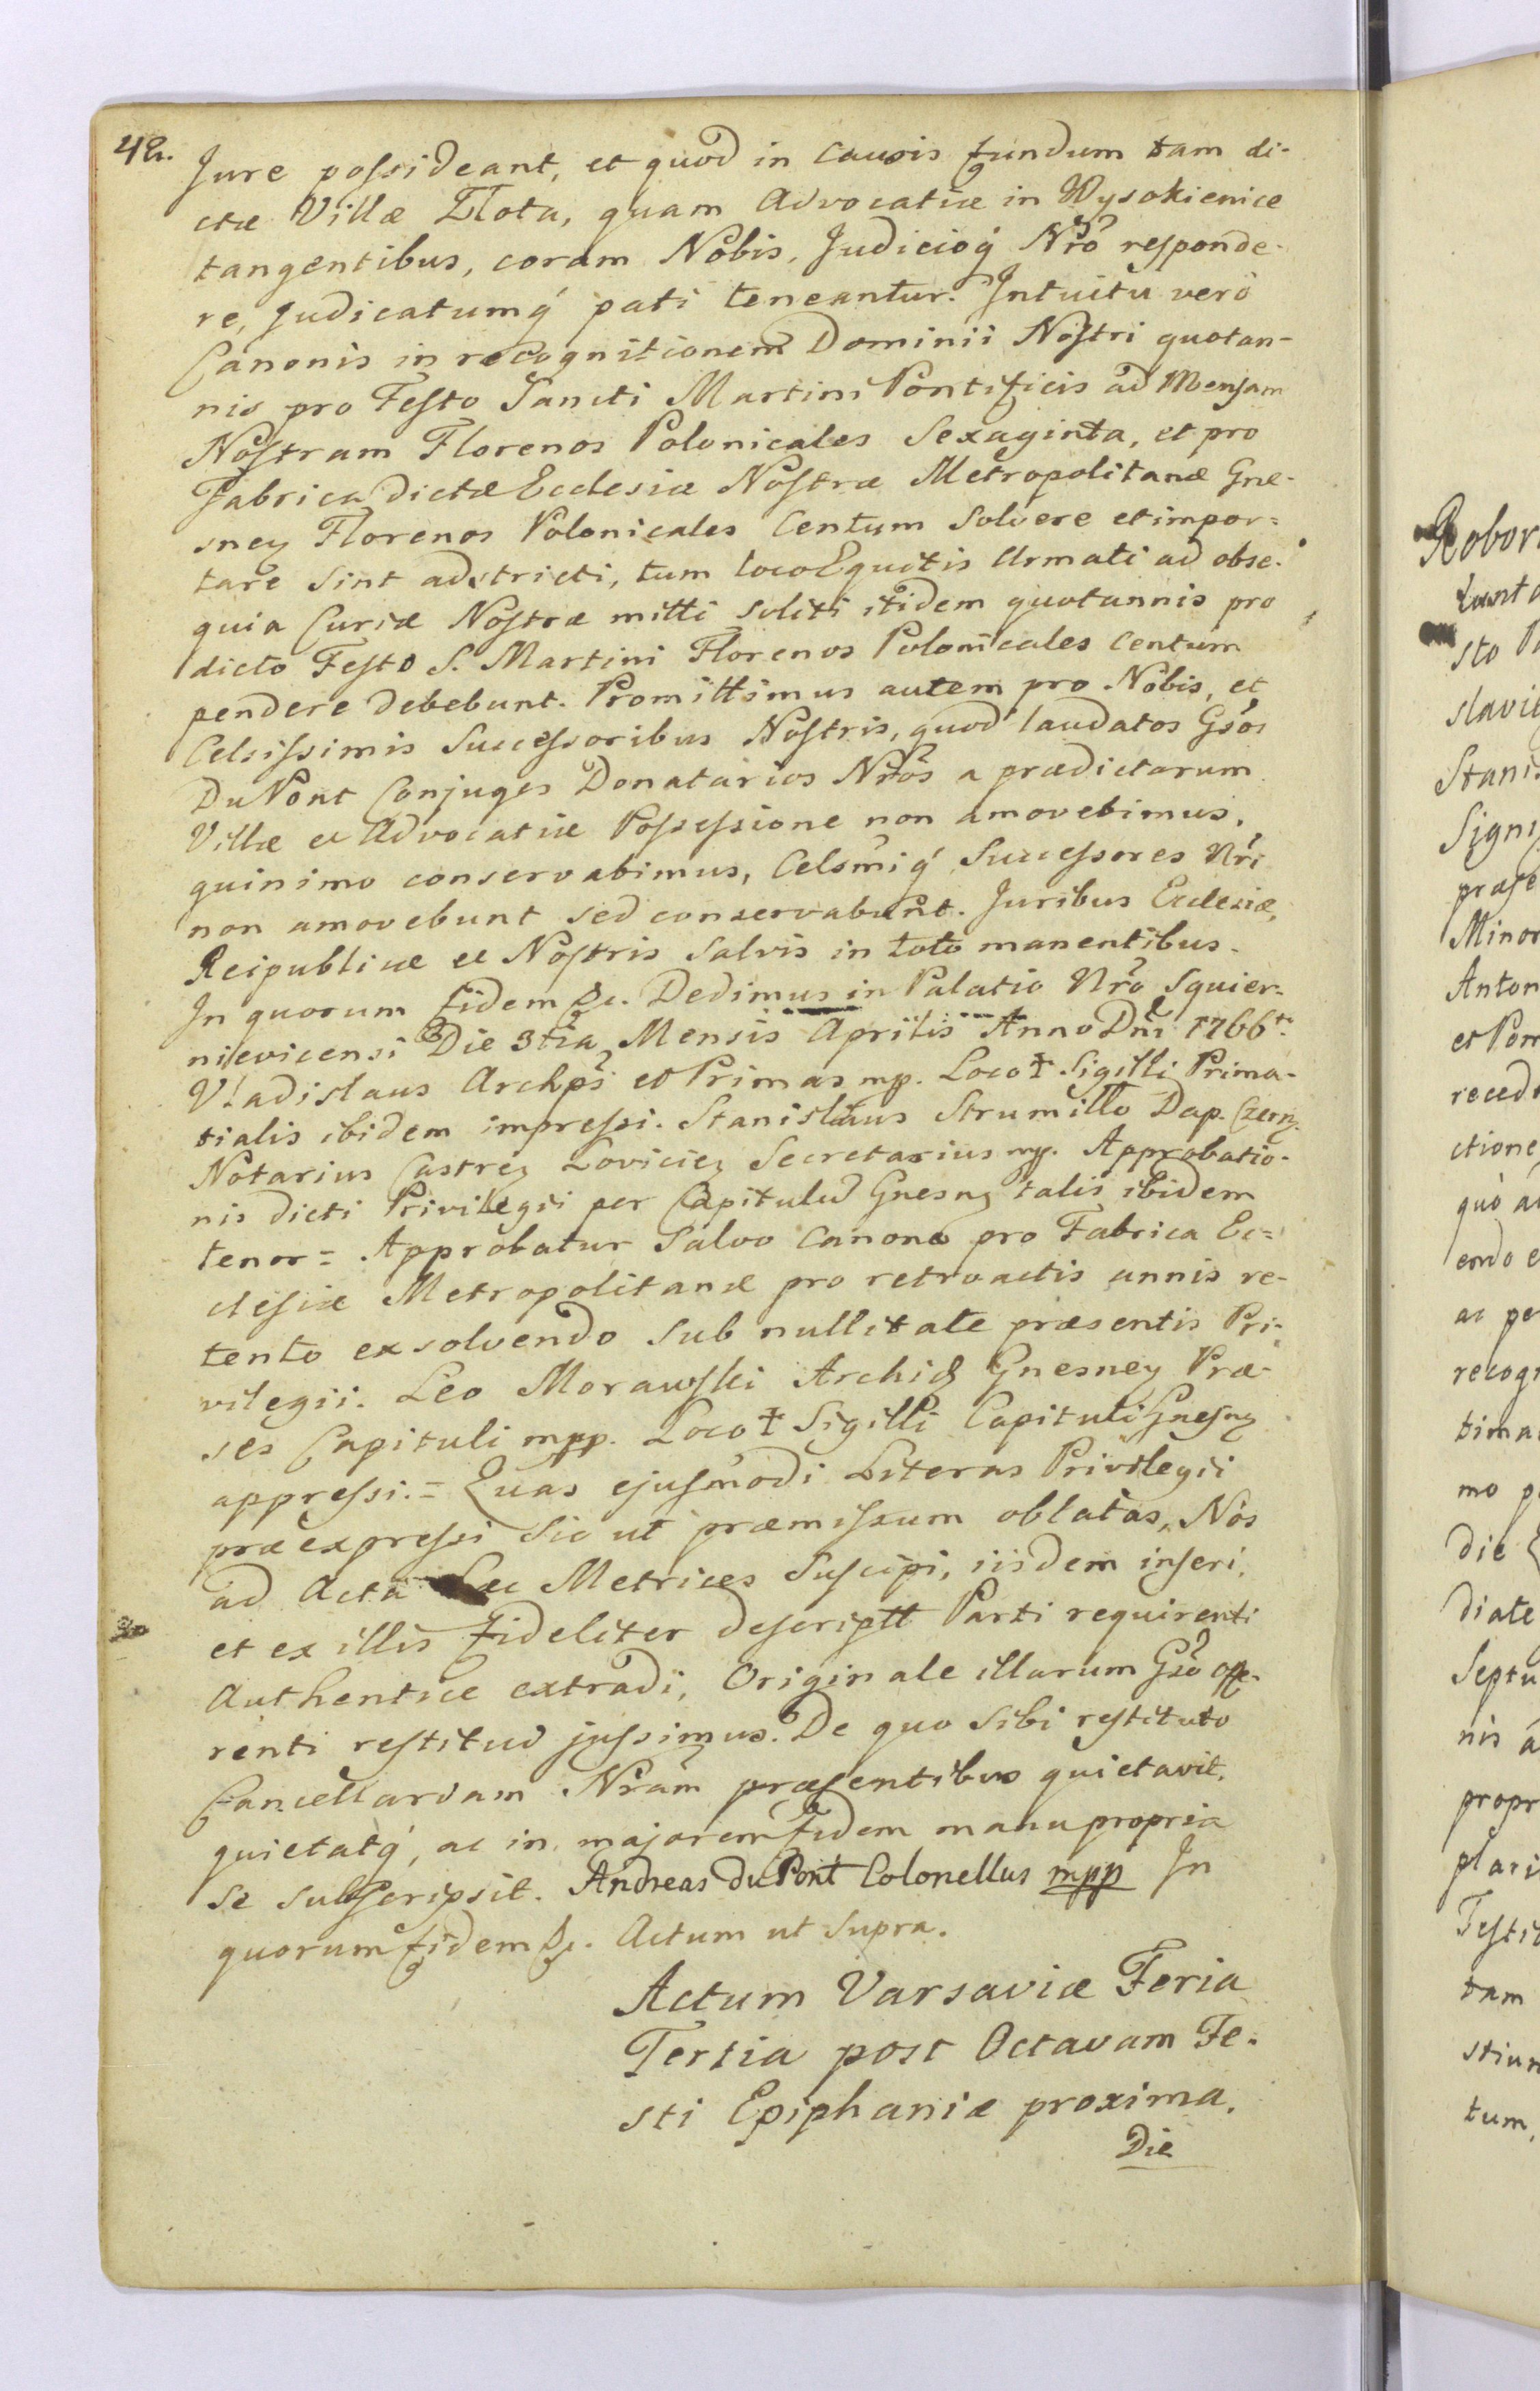 42.
Jure possideant, et quod in Causis fundum tam di-
ctæ Villæ Złota, quam Advocatiæ in Wysokienice
tangentibus, coram Nobis, Judicioq́ Nrõ responde-
re, Judicatumq́ pati teneantur. Intuitu verò
Canonis in recognitionem Dominii Nostri quotan-
nis pro Festo Sancti Martini Pontificis ad Mensam
Nostram Florenos Polonicales Sexaginta, et pro
Fabrica dictæ Ecclesiæ Nostræ Metropolitanæ Gne-
sneÿ Florenos Polonicales Centum Solvere et impor=
tare Sint adstricti, tum loco Equitis Armati ad obse-
quia Curiæ Nostræ mitti soliti itidem quotannis pro
dicto Festo S. Martini Florenos Polonicales Centum
pendere debebunt. Promittimus autem pro Nobis, et
Celsissimis Successoribus Nostris, quod laudatos Gsõs
Du Pont Conjuges Donatarios Nrõs a prædictarum
Villæ et Advocatiæ Possessione non amovebimus,
quinimo conservabimus, Celsmiq́ Successores Nri
non amovebunt sed conservabunt. Juribus Ecclesiæ,
Reipublicæ et Nostris Salvis in toto manentibus.
In quorum fidem &c. Dedimus in Palatio Nrõ Squier-
nievicensi Die 3tia Mensis Aprilis Anno Dni 1766to
Vladislaus Archpũs et Primas mp. Loco ‡ Sigilli Prima-
tialis ibidem impressi. Stanislaus Strumiłło Dap. Czern.
Notarius Castreÿ Lovicieÿ Secretarius mp. Approbatio-
nis dicti Privilegii per Capitulũ Gnesnÿ talis ibidem
tenor = Approbatur Salvo Canone pro Fabrica Ec=
clesiæ Metropolitanæ pro retroactis annis re-
tento exsolvendo Sub nullitate præsentis Pri-
vilegii. Leo Morawski Archid Gnesneÿ Præ-
ses Capituli mpp. Loco ‡ Sigilli Capituli Gnesnÿ
appressi. = Quas ejusmodi Literas Privilegii
præexpressi Sic ut præmissum oblatas, Nos
ad Acta Metrices Suscipi, iisdem inseri,
et ex illis fideliter descriptt Parti requirenti
Authentice extradi, Originale illarum Gsõ offe-
renti restitui jussimus. De quo Sibi restituto
Cancellariam Nram præsentibus quietavit,
quietatq́, ac in majorem fidem manu propria
se subscripsit. Andreas du Pont Colonellus mpp In
quorum fidem &c. Actum ut Supra.
Actum Varsaviæ Feria
Tertia post Octavam Fe-
sti Epiphaniæ proxima.
Die
Robor
sto
slavi
Stanis
Signi
præse
Minor
Anton
et Pom
reced
ctione
quò a
endo e
ac pe
recogn
tima
mo p
die
diate
Septu
nis á
propr
plari
Testi
tam
stium
tum,